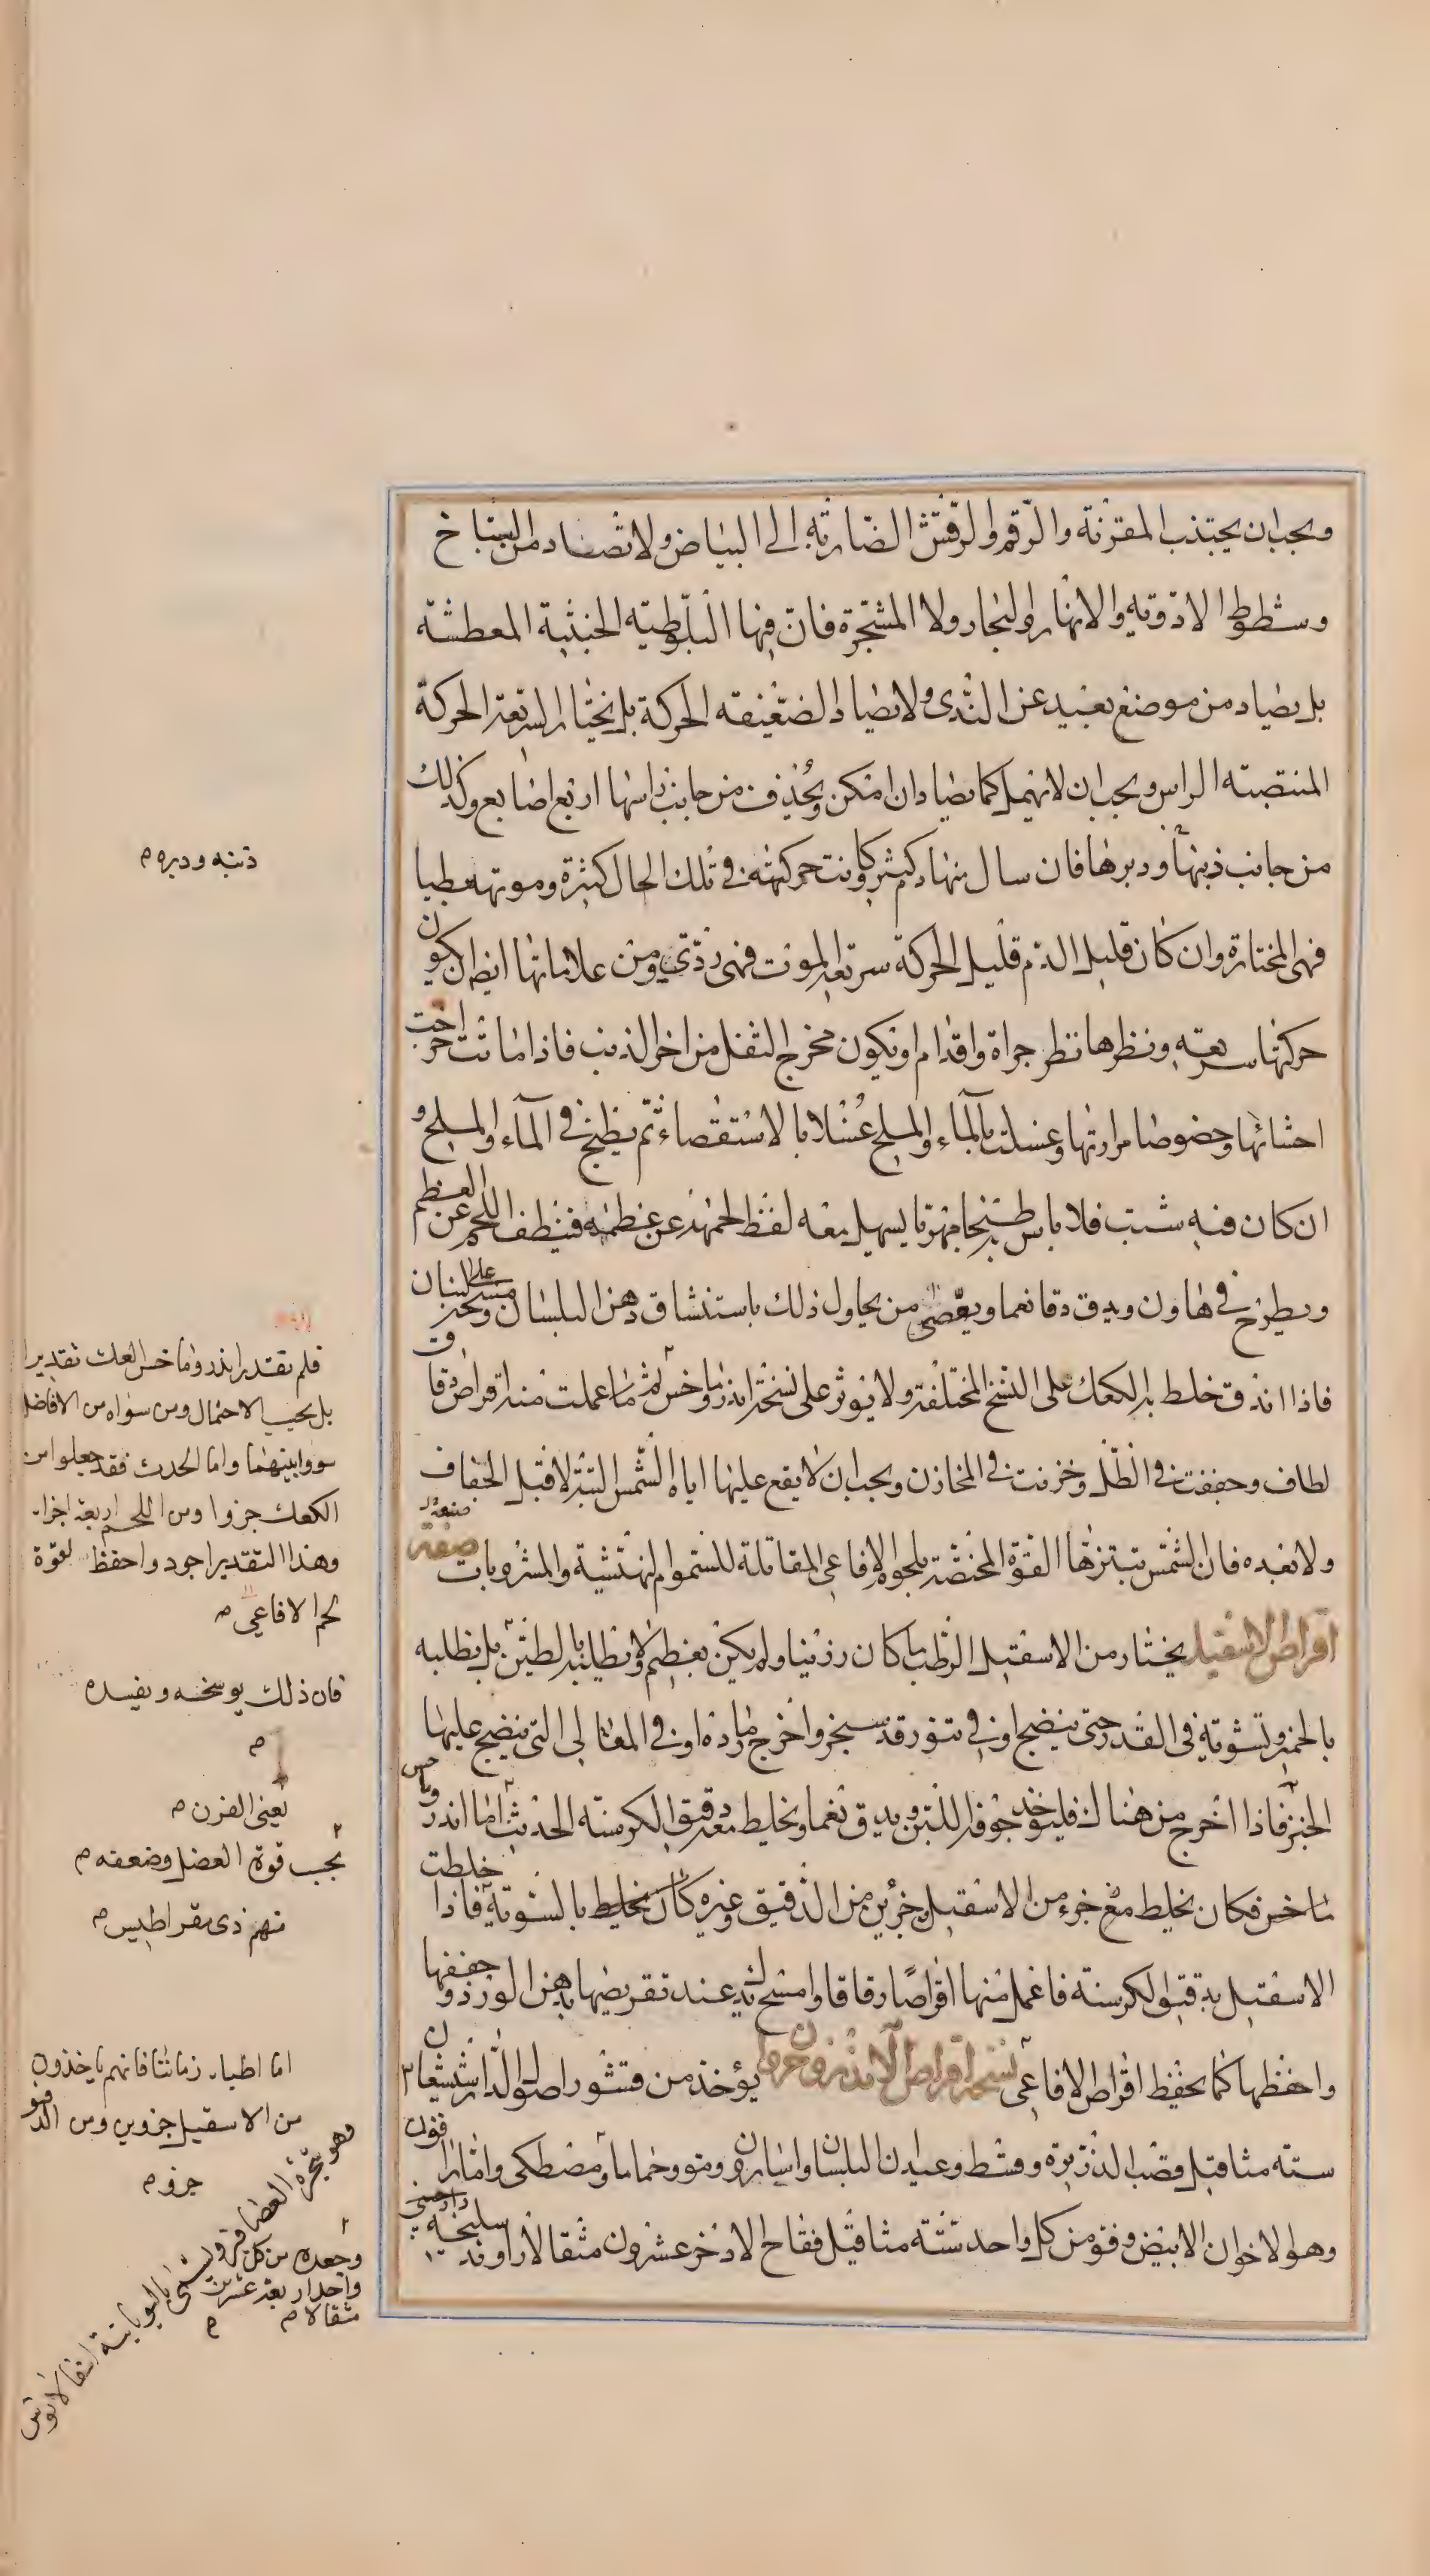 ويجب ان يجتنب المقرنة والرقم والرقش الضاربة الى البياض ولا تصاد من السباخ
وشطوط الاودية والانهار والبحار ولا المشجرة فان فيها البلوطية الخبيثة المعطشة
بل تصاد من موضع بعيد عن الندى ولا تصاد الضعيفة الحركة بل يختار السريعة الحركة
المنتصبة الراس ويجب ان لا تمهل كما تصاد ان امكن ويحذف من جانب راسها اربع اصابع وكذلك
من جانب ذنبها ودبرها فان سال منها دم كثير وكانت حركته في تلك الحال كثيرة وموته بطيا
فهى المختارة وان كان قليل الدم قليل الحركة سريعة الموت فهى ردي ومن علاماتها ايضا ان يكون
حركتها سريعة ونظرها نظر جراة واقدام او تكون مخرج الثفل من اخر الذنب فاذا ماتت اخرجت
احشائها وخصوصا مرارتها وغسلت بالماء والملح غسلا بالاستقصاء ثم يطبخ في الماء والملح و
ان كان فيه شبت فلا باس طبخا مهريا يسهل معه لقط لحمه عن عظمه فينظف اللحم عن العظم
ويطرح في هاون ويدق دقا نعما ويوصى من يحاول ذلك باستنشاق دهن البلسان ومسح على لبنان
فاذا اندق خلط به الكعك على النسخ المختلفة ولا يوثر على نسخة اندروماخس ثم ما عملت منه اقراص رقاق
لطاف وجففت في الظل وخزنت في المخازن ويجب ان لا يقع عليها اياه الشمس البتة لا قبل الجفاف
ولا بعده فان الشمس تبتزها القوة المختصة بلحوم الافاعي المقاتلة للسموم النهشية والمشروبات صفة
اقراص الاسقيل يختار من الاسقيل الرطب ما كان رزينا ولم يكن بعظيم ولا تطليه بالطين بل تطليه
بالخمير وتشويه في القدر حتى ينضج او في تنور قد سجر واخرج رماده او في المقالى التي ينضج عليها
الخبز فاذا اخرج من هناك فليوخذ جوفه اللين ويدق نعما ويخلط معه دقيق الكرسنة الحديث اما اندرو
ماخس فكان يخلط مع جزء من الاسقيل جزئين من الدقيق وغيره كان يخلط بالسوية فاذا خلطت
الاسقيل بدقيق الكرسنة فاعمل منها اقراصا رقاقا وامسح يدك عند تقريضها بدهن الورد وجففها
واحفظها كما يحفظ اقراص الافاعي نسخة اقراص الاندروخرون يؤخذ من قشور اصول الدارشيشعان
ستة مثاقيل وقصب الذريرة وقسط وعيدان البلسان واسارون ومو وحماما ومصطكى واماراقون
وهو الاخوان الابيض وفو من كل واحد ستة مثاقيل فقاح الاذخر عشرون مثقالا راوند سليخة دارصيني
ذنبه ودبره م
فلم يقتدر اندروماخس لعك تقديرا
بل بحسب الاحتمال ومن سواه من الافاضل
سووا بينهما واما الحدث فقد جعلوا من
الكعك جزوا ومن اللحم اربعة اجزا
وهذا التقدير اجود واحفظ لقوة
لحم الافاعي م
فان ذلك يوسخه ويفسده
م
يعنى الفرن م
بحسب قوة العضل وضعفه م
منهم ذى مقراطيس م
اما اطباء زماننا فانهم ياخذون
من الاسقيل جزوين ومن الدقيق
جزو م
وجعله من كل
واحد اربعة عشرين
مثقالا م